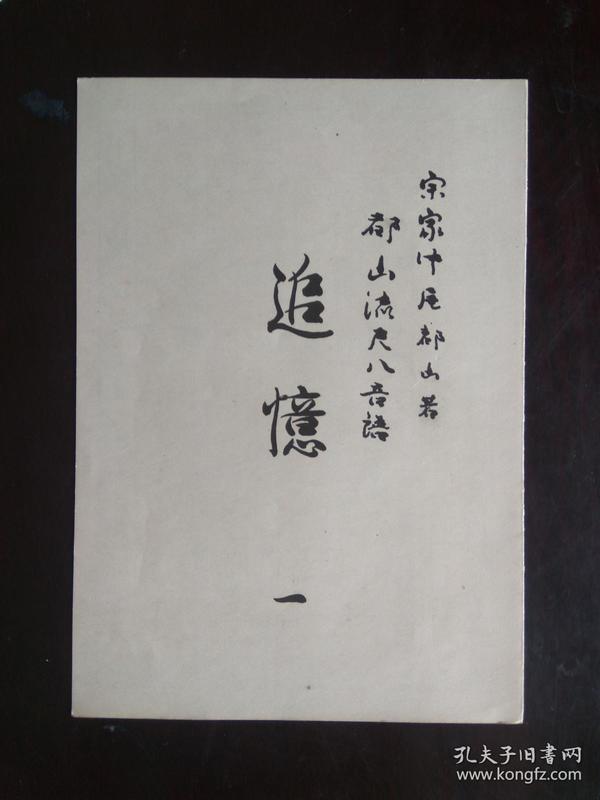 宗家中尾都山著
都山流尺八音譜
追憶
一
孔夫子旧書网
www.kongfz.com